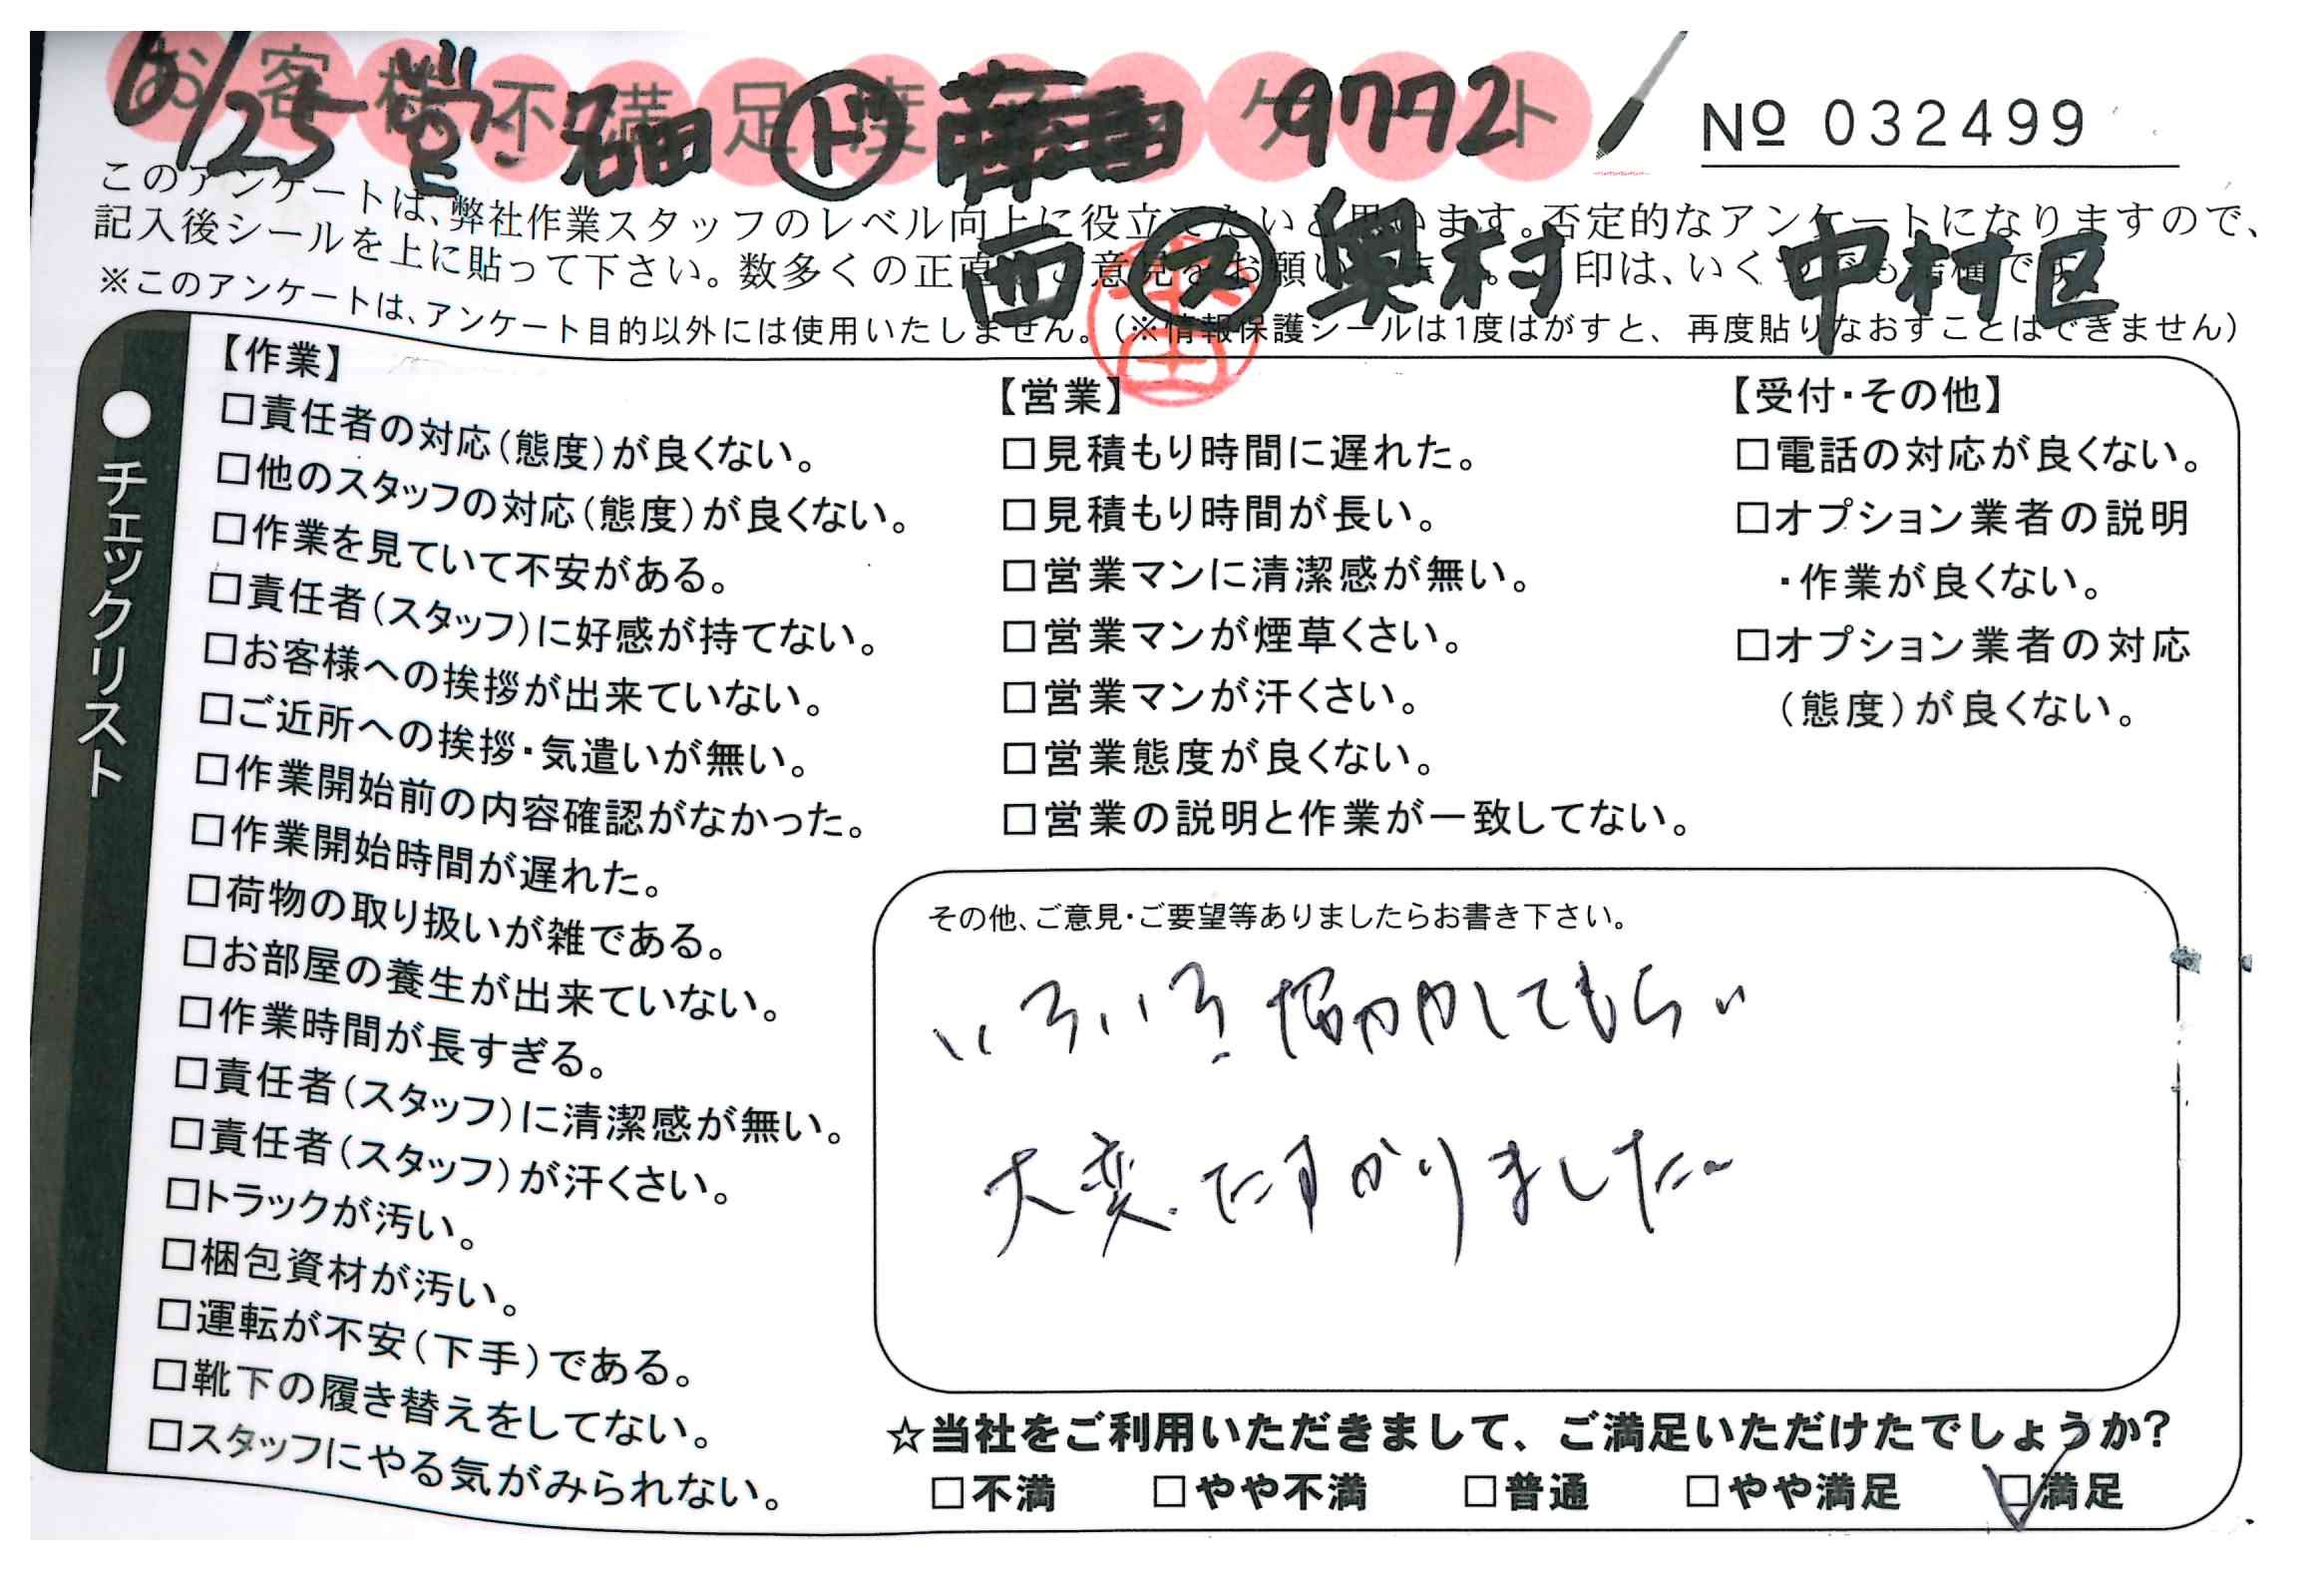 お客様不満足度アンケート
6/25 営 ド 9772
№ 032499
西 ス 奥村 中村区
このアンケートは、弊社作業スタッフのレベル向上に役立てたいと思います。否定的なアンケートになりますので、
記入後シールを上に貼って下さい。数多くの正直なご意見をお願いします。印は、いくつでも結構です。
※このアンケートは、アンケート目的以外には使用いたしません。(※情報保護シールは1度はがすと、再度貼りなおすことはできません)
●チェックリスト
【作業】
□責任者の対応(態度)が良くない。
□他のスタッフの対応(態度)が良くない。
□作業を見ていて不安がある。
□責任者(スタッフ)に好感が持てない。
□お客様への挨拶が出来ていない。
□ご近所への挨拶・気遣いが無い。
□作業開始前の内容確認がなかった。
□作業開始時間が遅れた。
□荷物の取り扱いが雑である。
□お部屋の養生が出来ていない。
□作業時間が長すぎる。
□責任者(スタッフ)に清潔感が無い。
□責任者(スタッフ)が汗くさい。
□トラックが汚い。
□梱包資材が汚い。
□運転が不安(下手)である。
□靴下の履き替えをしてない。
□スタッフにやる気がみられない。
【営業】
□見積もり時間に遅れた。
□見積もり時間が長い。
□営業マンに清潔感が無い。
□営業マンが煙草くさい。
□営業マンが汗くさい。
□営業態度が良くない。
□営業の説明と作業が一致してない。
【受付・その他】
□電話の対応が良くない。
□オプション業者の説明
・作業が良くない。
□オプション業者の対応
(態度)が良くない。
その他、ご意見・ご要望等ありましたらお書き下さい。
いろいろ かしてもらい
大変たすかりました。
☆当社をご利用いただきまして、ご満足いただけたでしょうか?
□不満 □やや不満 □普通 □やや満足 ☑満足